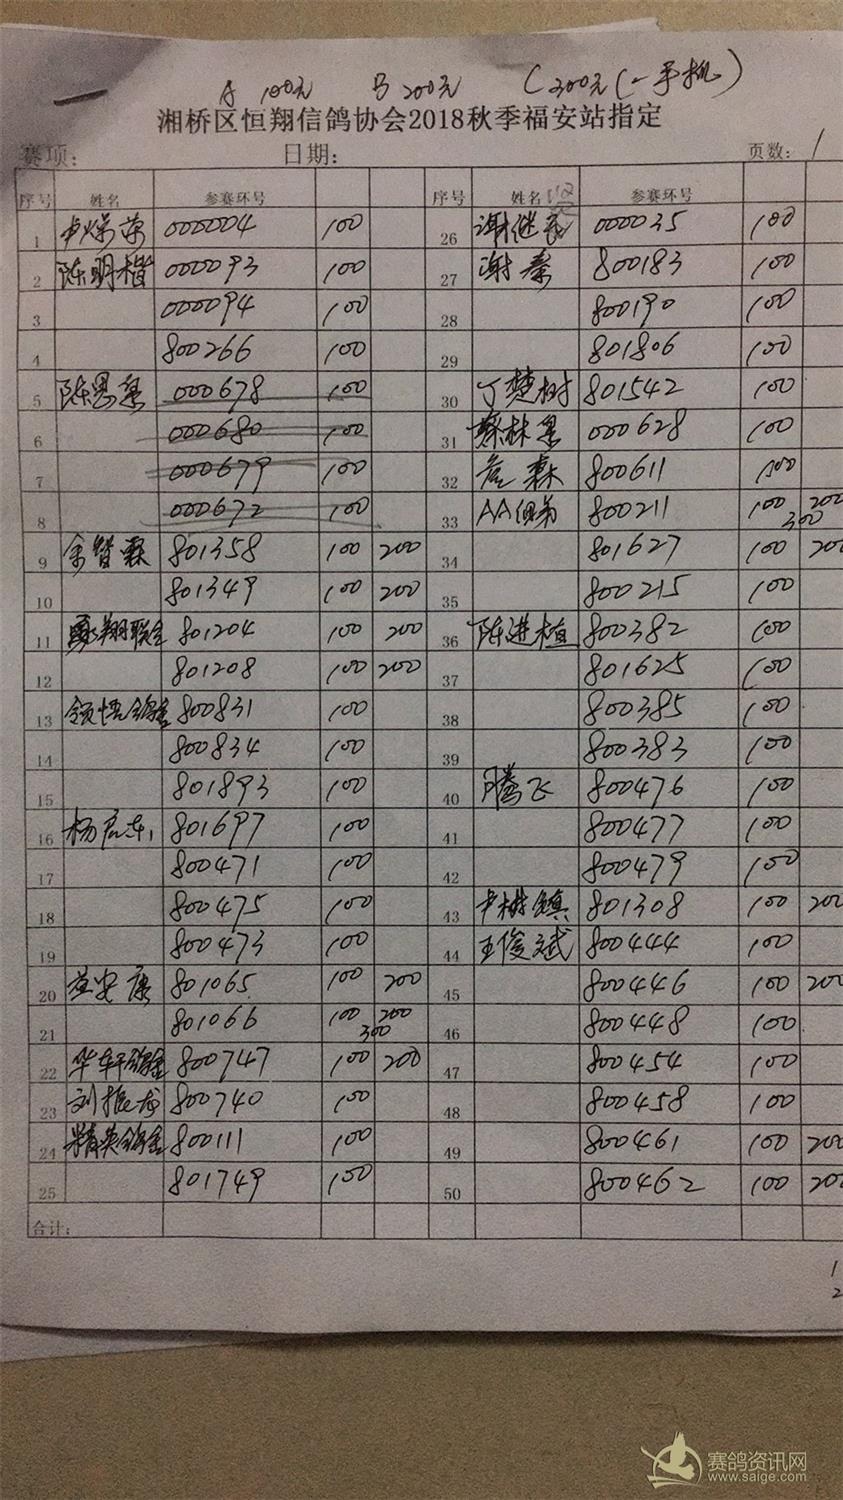 A 100元 B 200元 C 300元(一手机)
湘桥区恒翔信鸽协会2018秋季福安站指定
赛项: 日期: 页数: 1
序号 姓名 参赛环号 序号 姓名 参赛环号
1 000004 100 26 谢继 000035 100
2 陈明楷 000093 100 27 谢泰 800183 100
3 000094 100 28 800190 100
4 800266 100 29 801806 100
5 陈思 000678 100 30 丁楚树 801542 100
6 000680 100 31 林 000628 100
7 000679 100 32 森 800611 100
8 000672 100 33 AA 800211 100 200 300
9 余智霖 801358 100 200 34 801627 100 200
10 801349 100 200 35 800215 100
11 翔联 801204 100 200 36 陈进植 800382 100
12 801208 100 200 37 801625 100
13 领悟鸽舍 800831 100 38 800385 100
14 800834 100 39 800383 100
15 801893 100 40 腾飞 800476 100
16 杨 801697 100 41 800477 100
17 800471 100 42 800479 100
18 800475 100 43 镇 801308 100 200
19 800473 100 44 王俊斌 800444 100
20 安康 801065 100 200 45 800446 100 200
21 801066 100 200 300 46 800448 100
22 华轩鸽舍 800747 100 200 47 800454 100
23 刘振龙 800740 100 48 800458 100
24 精英鸽舍 800111 100 49 800461 100 200
25 801749 100 50 800462 100 200
合计:
1
2
赛鸽资讯网
www.saige.com